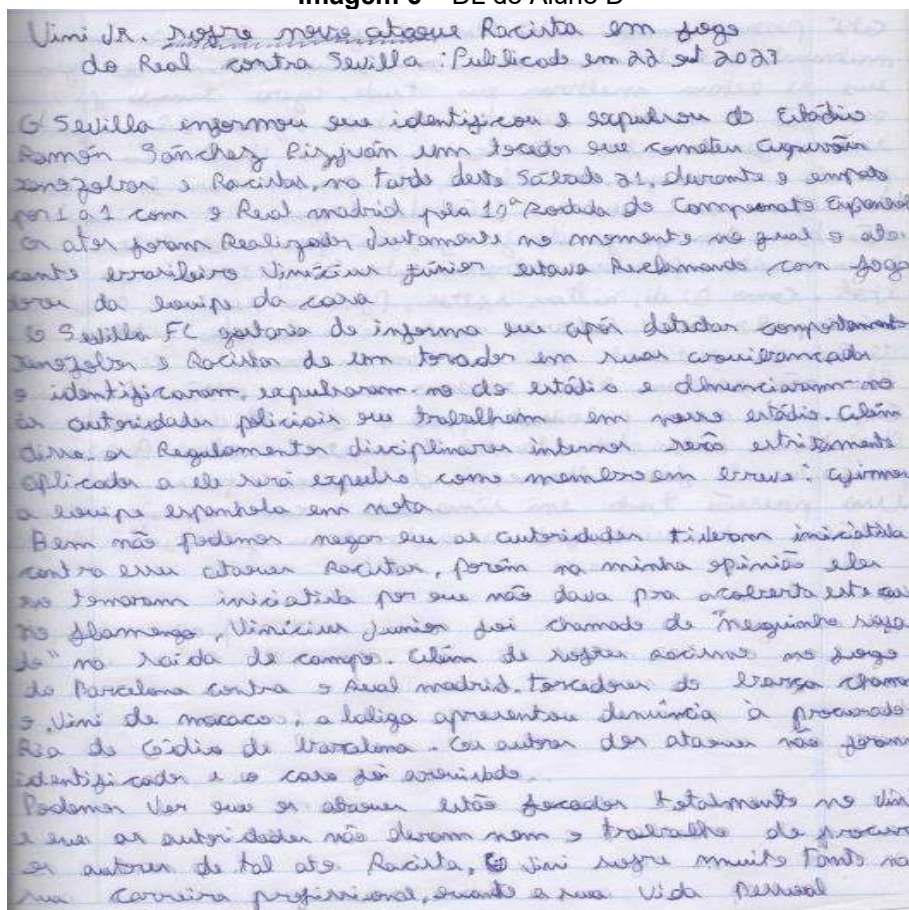 Imagem 6 – DE do Aluno B
Vini Jr. sofre novo ataque Racista em jogo
do Real contra Sevilla : Publicado em 22 out 2023
O Sevilla enformou que identificou e expulsou do Estádio
Ramón Sánchez Pizjuán um tocedor que cometeu
e Racistas, na tarde deste Sábado 21, durante o empate
por 1 a 1 com o Real madrid pela 10ª Rodada do Campeonato Espanhol
Os atos foram Realizados Justamente no momento no qual o ata-
cante brasileiro Vinícius júnior estava Reclamando com joga
dores da equipe da casa
O Sevilla FC gostaria de informa que após detectar comportamento
e Racistas de um torcador em suas
o identificaram, expulsaram-no do estádio e denunciaram-no
às autoridades policiais que trabalham em nosso estádio. Além
disso, os Regulamentos disciplinares internos serão estritamente
aplicados a ele será expulso como membro em breve". afirmou
a equipe espanhola em nota
Bem não podemos negar que as autoridades tiveram iniciativa
contra esses ataques Racistas, porém na minha opinião eles
so tomaram iniciativa por que não dava pra este
no flamengo, Vinícius Junior foi chamado de "neguinho safa
do" na saída de campo. Além de sofrer racismo no jogo
do Barcelona contra o Real madrid. torcedores do barça chama
o Vini de macaco, a laliga apresentou denúncia à procurado
Ria de Ódio de barcelona. Os autores dos ataques não foram
identificados e o caso foi arquivado.
Podemos Ver que os ataques estão focados totalmente no Vini
e que as autoridades não deram nem o trabalho de procurar
os autores de tal ato Racista, O Vini sofre muito tanto na
sua carreira profissional, quanto a sua vida Pessoal